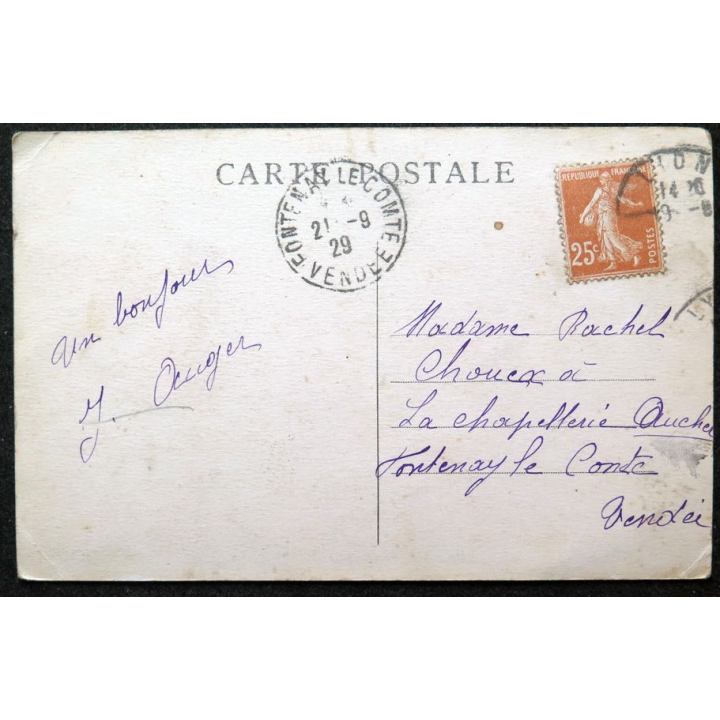 CARTE POSTALE
FONTENAY LE COMTE
21 -9
29
VENDEE
REPUBLIQUE FRANÇAISE
25c
POSTES
14
Un bonjour
J. Auger
Madame Rachel
à
La chapellerie
Fontenay le Conte
Vendée